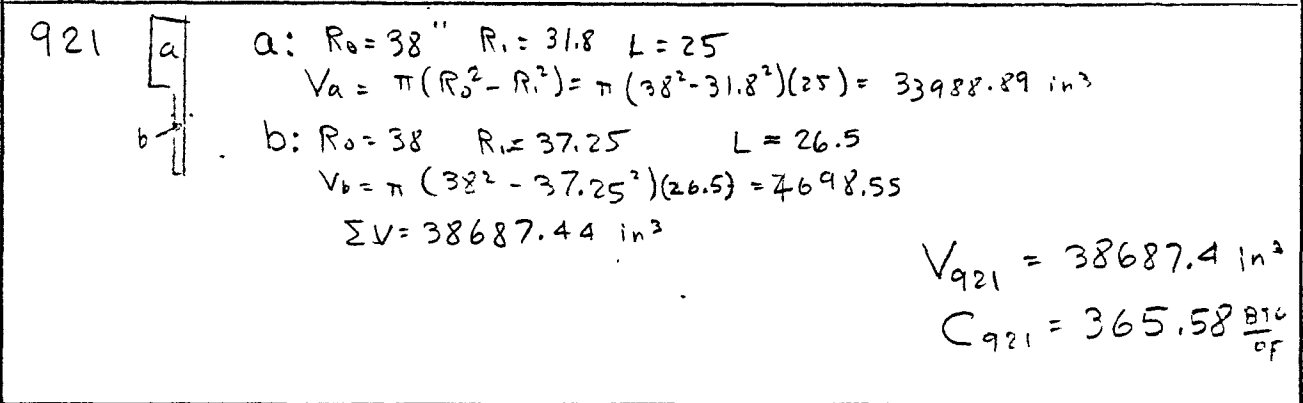 921 a a: R₀ = 38" R₁ = 31.8 L = 25
Va = π(R₀² - R₁²) = π (38² - 31.8²)(25) = 33988.89 in³
b b: R₀ = 38 R₁ = 37.25 L = 26.5
Vb = π (38² - 37.25²)(26.5) = 4698.55
ΣV = 38687.44 in³
V₉₂₁ = 38687.4 in³
C₉₂₁ = 365.58 BTU/°F